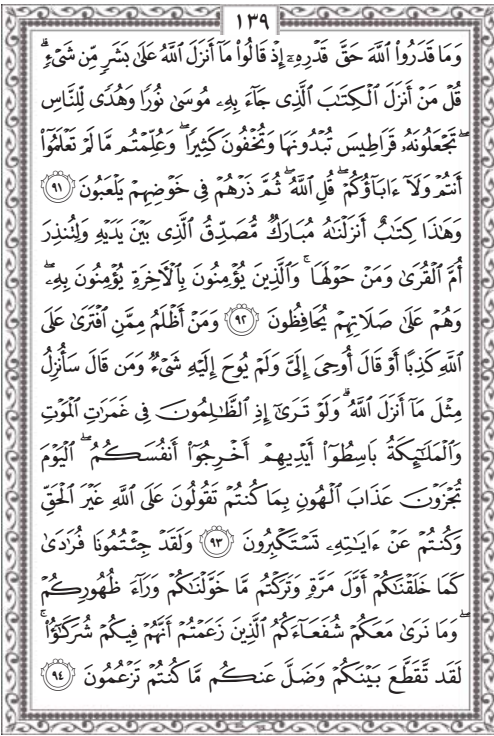 ١٣٩
وَمَا قَدَرُوا۟ اللَّهَ حَقَّ قَدْرِهِۦٓ إِذْ قَالُوا۟ مَآ أَنزَلَ اللَّهُ عَلَىٰ بَشَرٍ مِّن شَىْءٍ ۗ
قُلْ مَنْ أَنزَلَ الْكِتَٰبَ الَّذِى جَآءَ بِهِۦ مُوسَىٰ نُورًا وَهُدًى لِّلنَّاسِ
ۖ تَجْعَلُونَهُۥ قَرَاطِيسَ تُبْدُونَهَا وَتُخْفُونَ كَثِيرًا ۖ وَعُلِّمْتُم مَّا لَمْ تَعْلَمُوٓا۟
أَنتُمْ وَلَآ ءَابَآؤُكُمْ ۖ قُلِ اللَّهُ ۖ ثُمَّ ذَرْهُمْ فِى خَوْضِهِمْ يَلْعَبُونَ ٩١
وَهَٰذَا كِتَٰبٌ أَنزَلْنَٰهُ مُبَارَكٌ مُّصَدِّقُ الَّذِى بَيْنَ يَدَيْهِ وَلِتُنذِرَ
أُمَّ الْقُرَىٰ وَمَنْ حَوْلَهَا ۚ وَالَّذِينَ يُؤْمِنُونَ بِالْءَاخِرَةِ يُؤْمِنُونَ بِهِۦ ۖ
وَهُمْ عَلَىٰ صَلَاتِهِمْ يُحَافِظُونَ ٩٢ وَمَنْ أَظْلَمُ مِمَّنِ افْتَرَىٰ عَلَى
اللَّهِ كَذِبًا أَوْ قَالَ أُوحِىَ إِلَىَّ وَلَمْ يُوحَ إِلَيْهِ شَىْءٌ وَمَن قَالَ سَأُنزِلُ
مِثْلَ مَآ أَنزَلَ اللَّهُ ۗ وَلَوْ تَرَىٰٓ إِذِ الظَّٰلِمُونَ فِى غَمَرَٰتِ الْمَوْتِ
وَالْمَلَٰٓئِكَةُ بَاسِطُوٓا۟ أَيْدِيهِمْ أَخْرِجُوٓا۟ أَنفُسَكُمُ ۖ الْيَوْمَ
تُجْزَوْنَ عَذَابَ الْهُونِ بِمَا كُنتُمْ تَقُولُونَ عَلَى اللَّهِ غَيْرَ الْحَقِّ
وَكُنتُمْ عَنْ ءَايَٰتِهِۦ تَسْتَكْبِرُونَ ٩٣ وَلَقَدْ جِئْتُمُونَا فُرَٰدَىٰ
كَمَا خَلَقْنَٰكُمْ أَوَّلَ مَرَّةٍ وَتَرَكْتُم مَّا خَوَّلْنَٰكُمْ وَرَآءَ ظُهُورِكُمْ
ۖ وَمَا نَرَىٰ مَعَكُمْ شُفَعَآءَكُمُ الَّذِينَ زَعَمْتُمْ أَنَّهُمْ فِيكُمْ شُرَكَٰٓؤُا۟ ۚ
لَقَد تَّقَطَّعَ بَيْنَكُمْ وَضَلَّ عَنكُم مَّا كُنتُمْ تَزْعُمُونَ ٩٤